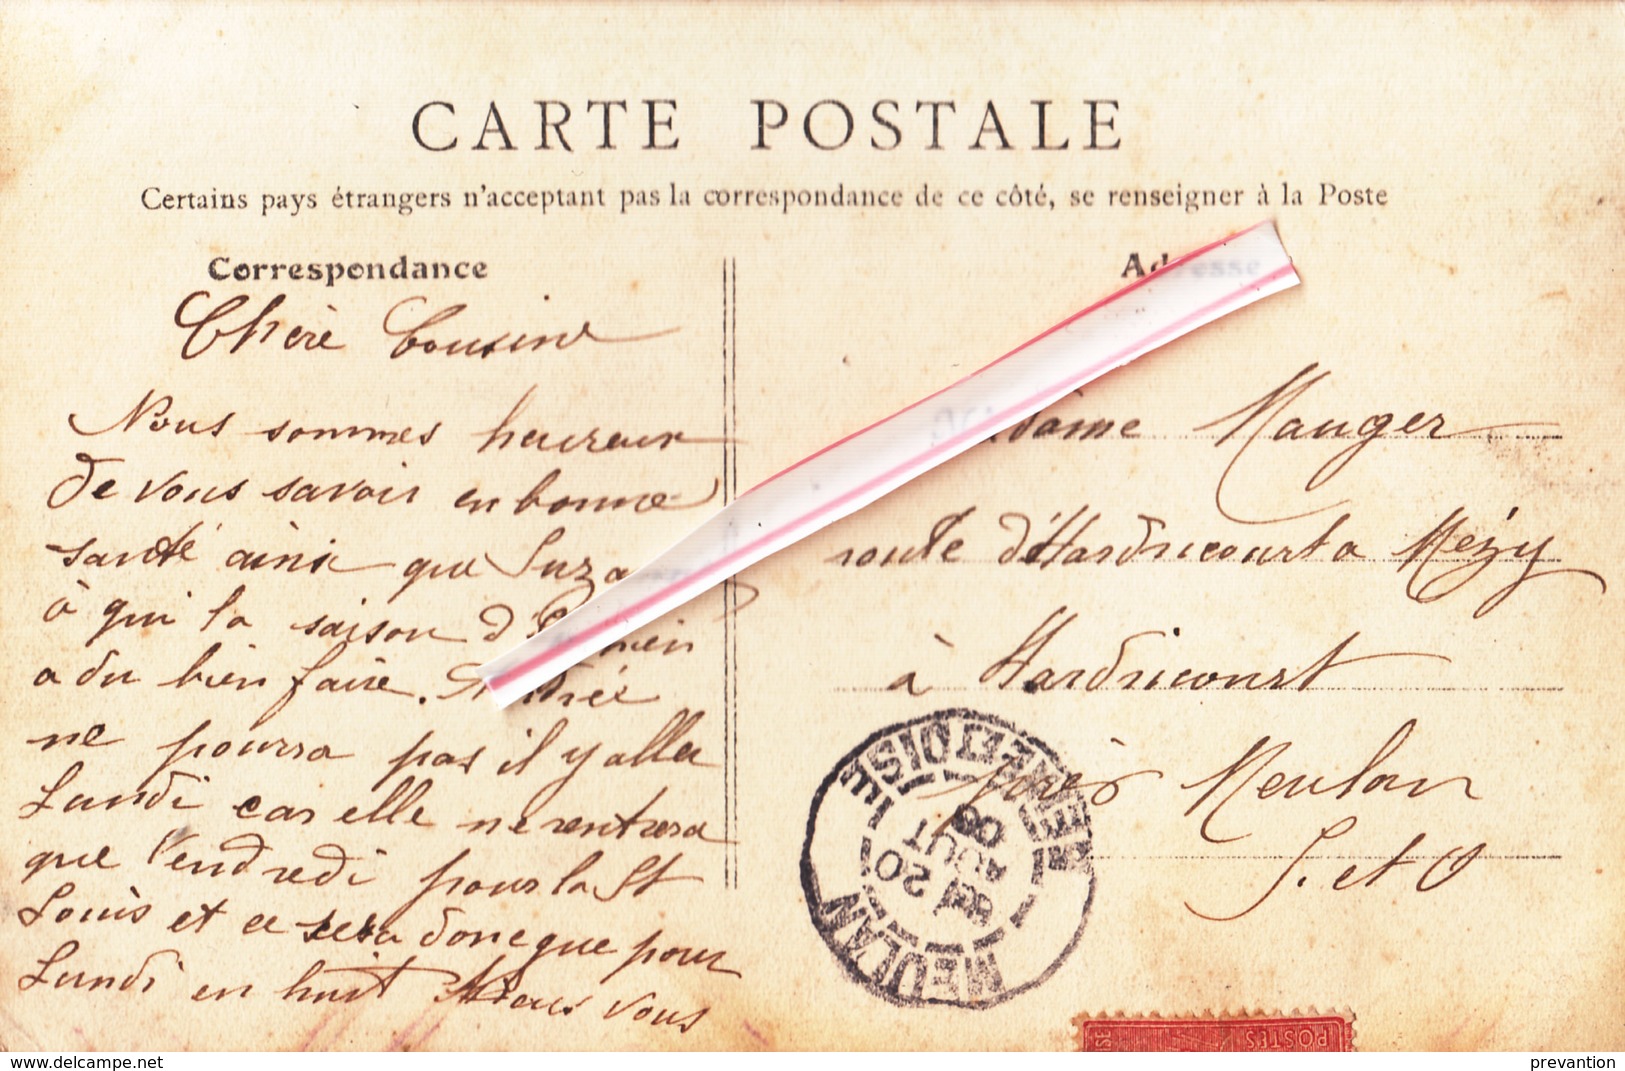 CARTE POSTALE
Certains pays étrangers n'acceptant pas la correspondance de ce côté, se renseigner à la Poste
Correspondance
Chère Cousine
Nous sommes heureux
de vous savoir en bonne
santé ainsi que Suza
à qui la saison
a du bien faire.
ne pourra pas il y aller
Lundi car elle ne rentrera
que Vendredi pour la St
Louis et ce sera donc que pour
Lundi en huit vous
Adresse
Madame Mauger
route d'Hardricourt a Mézy
à Hardricourt
près Meulan
S. et O
MEULAN
SEINE-ET-OISE
20
AOUT
06
POSTES
delcampe.net
prevantion